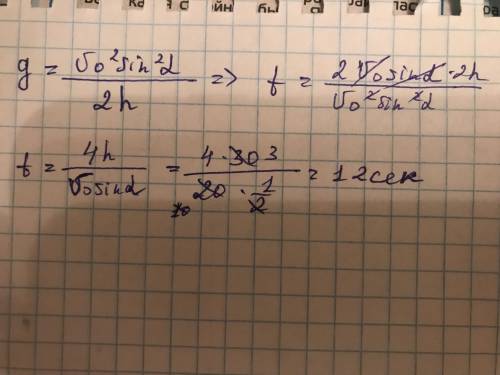 йн бы ру
g = v₀² sin² α / 2h => t = 2 v₀ sin α · 2h / v₀² sin² α
t = 4h / v₀ sin α = 4 · 30 3 / 20 10 · 1/2 = 12 сек